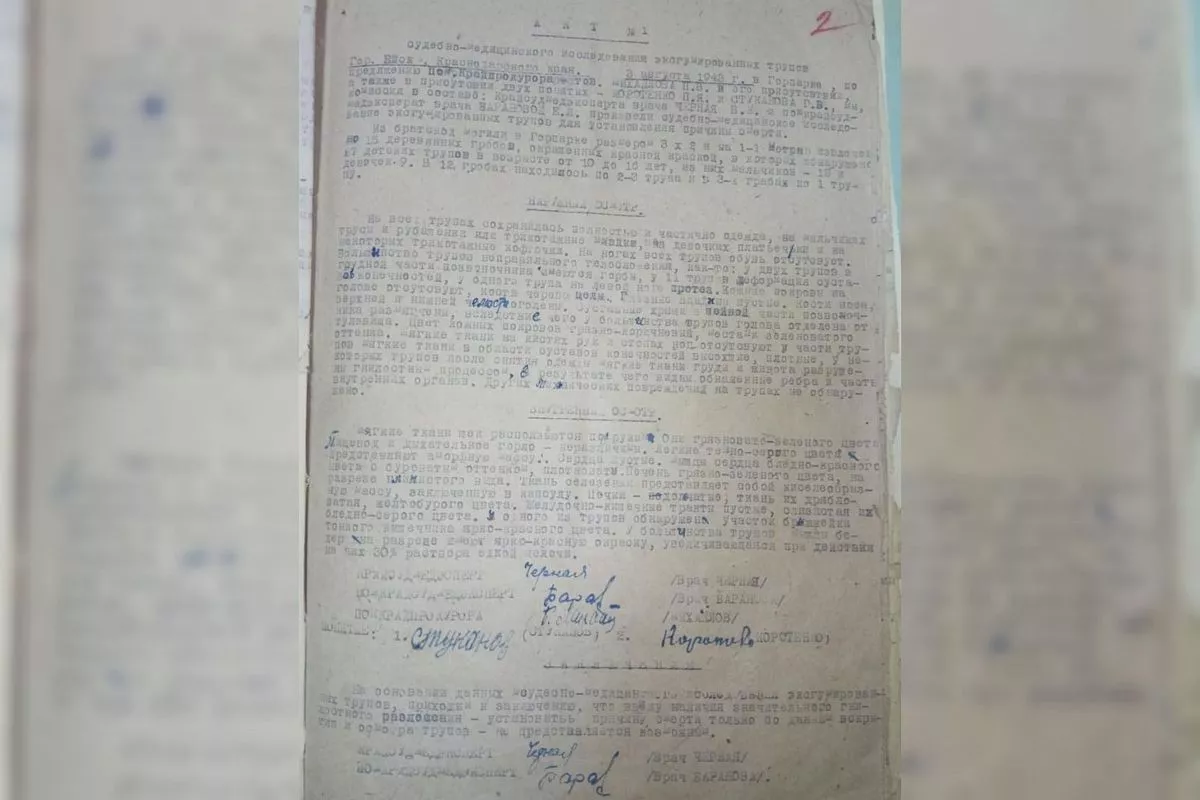 2
А К Т №1
судебно-медицинского исследования эксгумированных трупов
Гор. Ейск, Краснодарского края. 3 августа 1943 г. в Горпарке, по
предложению Пом.Крайпрокурора МИХАЙЛОВА П.В. и его присутствии,
а также в присутствии двух понятых - КОРОТЕНКО П.Я. и СТУКАНОВА Г.В.,
комиссия в составе: крайсудмедэксперта врача ЧЕРНАЯ В.Я. и
медэксперт врача БАРАНОВОЙ произвели судебно-медицинское исследо-
вание эксгумированных трупов для установления причины смерти.
Из братской могилы в Горпарке размером 3 х 2 и на 1-1 метра извлечено
15 деревянных гробов, окрашенных красной краской, в которых обнаружено
детских трупов в возрасте от 10 до 16 лет, из них мальчиков -
девочек-9. В 12 гробах находилось по 2-3 трупа и в 3-х гробах по 1 тру-
пу.
НАРУЖНЫЙ ОСМОТР.
На всех трупах сохранилась полностью и частично одежда, на мальчиках
трусы и рубашечки или трикотажные майки, на девочках платьечки и на
некоторых трикотажные кофточки. На ногах всех трупов обувь отсутсвует.
Большинство трупов неправильного телосложения, как-то: у двух трупов в
грудной части позвоночника имеются горбы, у 11 трупов деформация суста-
вов конечностей, у одного трупа на левой ноге протез. Кожные покровы на
голове отсутствуют, кости черепа целы. Глазные впадины пустые. Кости носа,
верхней и нижней челюсти оголены. Суставные хрящи в шейной части позвоноч-
ника размягчены, вследствие чего у большинства трупов голова отделена от
туловища. Цвет кожных покровов грязно-коричневый, местами зеленоватого
оттенка. Мягкие ткани на кистях рук и стопах ног отсутствуют у части тру-
пов мягкие ткани в области суставов конечностей высохшие, плотные, у не-
которых трупов после снятия одежды мягкие ткани груди и живота разруше-
ны гнилостным процессом, в результате чего видны обнаженные ребра и часть
внутренних органов. Других механических повреждений на трупах не обнару-
жено.
ВНУТРЕННИЙ ОСМОТР.
Мягкие ткани шеи расползаются под руками. Они грязновато-зеленого цвета
Пищевод и дыхательное горло - Легкие темно-серого цвета и
представляют аморфную массу. Сердце пустые. Мышцы сердца бледно-красного
цвета с сероватым оттенком, плотноваты. Печень грязно-зеленого цвета, на
разрезе глинистого вида. Ткань селезенки представляет собой киселеобраз-
ную массу, заключенную в капсулу. Почки - ткань их дрябло-
ватая, желтобурого цвета. Желудочно-кишечные тракты пустые, слизистая их
бледно-серого цвета. У одного из трупов обнаружена участок брыжейки
тонкого кишечника ярко-красного цвета. У большинства трупов мышцы бе-
дер на разрезе имеют ярко-красную окраску, увеличивающаяся при действии
на них 30% раствора едкой щелочи.
КРАЙСУДМЕДЭКСПЕРТ Черная /Врач ЧЕРНАЯ/
ПОМ-КРАЙСУДМЕДЭКСПЕРТ Баран /Врач БАРАНОВА/
ПОМКРАЙПРОКУРОРА /МИХАЙЛОВ/
ПОНЯТЫЕ: 1. Стуканов (СТУКАНОВ) 2. Коротенко (КОРОТЕНКО)
ЗАКЛЮЧЕНИЕ
На основании данных судебно-медицинского исследования эксгумирован-
ных трупов, приходим к заключению, что ввиду наличия значительного гни-
лостного разложения - установить причину смерти только по данным вскры-
тия и осмотра трупов - не представляется возможным.
КРАЙСУДМЕДЭКСПЕРТ Черная /Врач ЧЕРНАЯ/
ПОМ-КРАЙСУДМЕДЭКСПЕРТ Баран /Врач БАРАНОВА/.